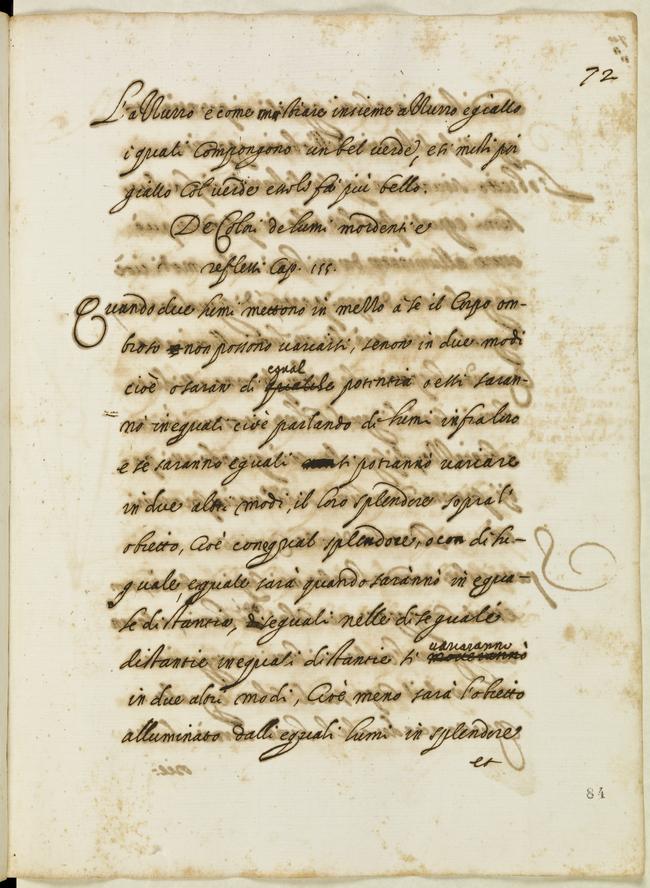 72
L'aNurro è come mostiare insieme aNurro e giallo
i quali compongono un bel verde, et i misti poi
giallo col verde essoli fa più bello.
De Colori de lumi mordenti e
refletti Cap. 155.
Quando due lumi mettono in mezzo à se il Corpo om-
broso non possono variarsi, se non in due modi
cioè o saran di equal potentia o essi saran-
nò inequali cioè parlando di lumi infra loro
e se saranno equali si potranno variare
in due altri modi, il loro splendore sopra l'
obietto, Cioè con equal splendore, o con disu-
guale equale sarà quando saranno in equa-
le distantia, diseguali nelle diseguale
distantie inequali distantie si variaranno
in due altri modi, Cioè meno sarà l'obietto
alluminato dalli equali lumi in splendore
et
84